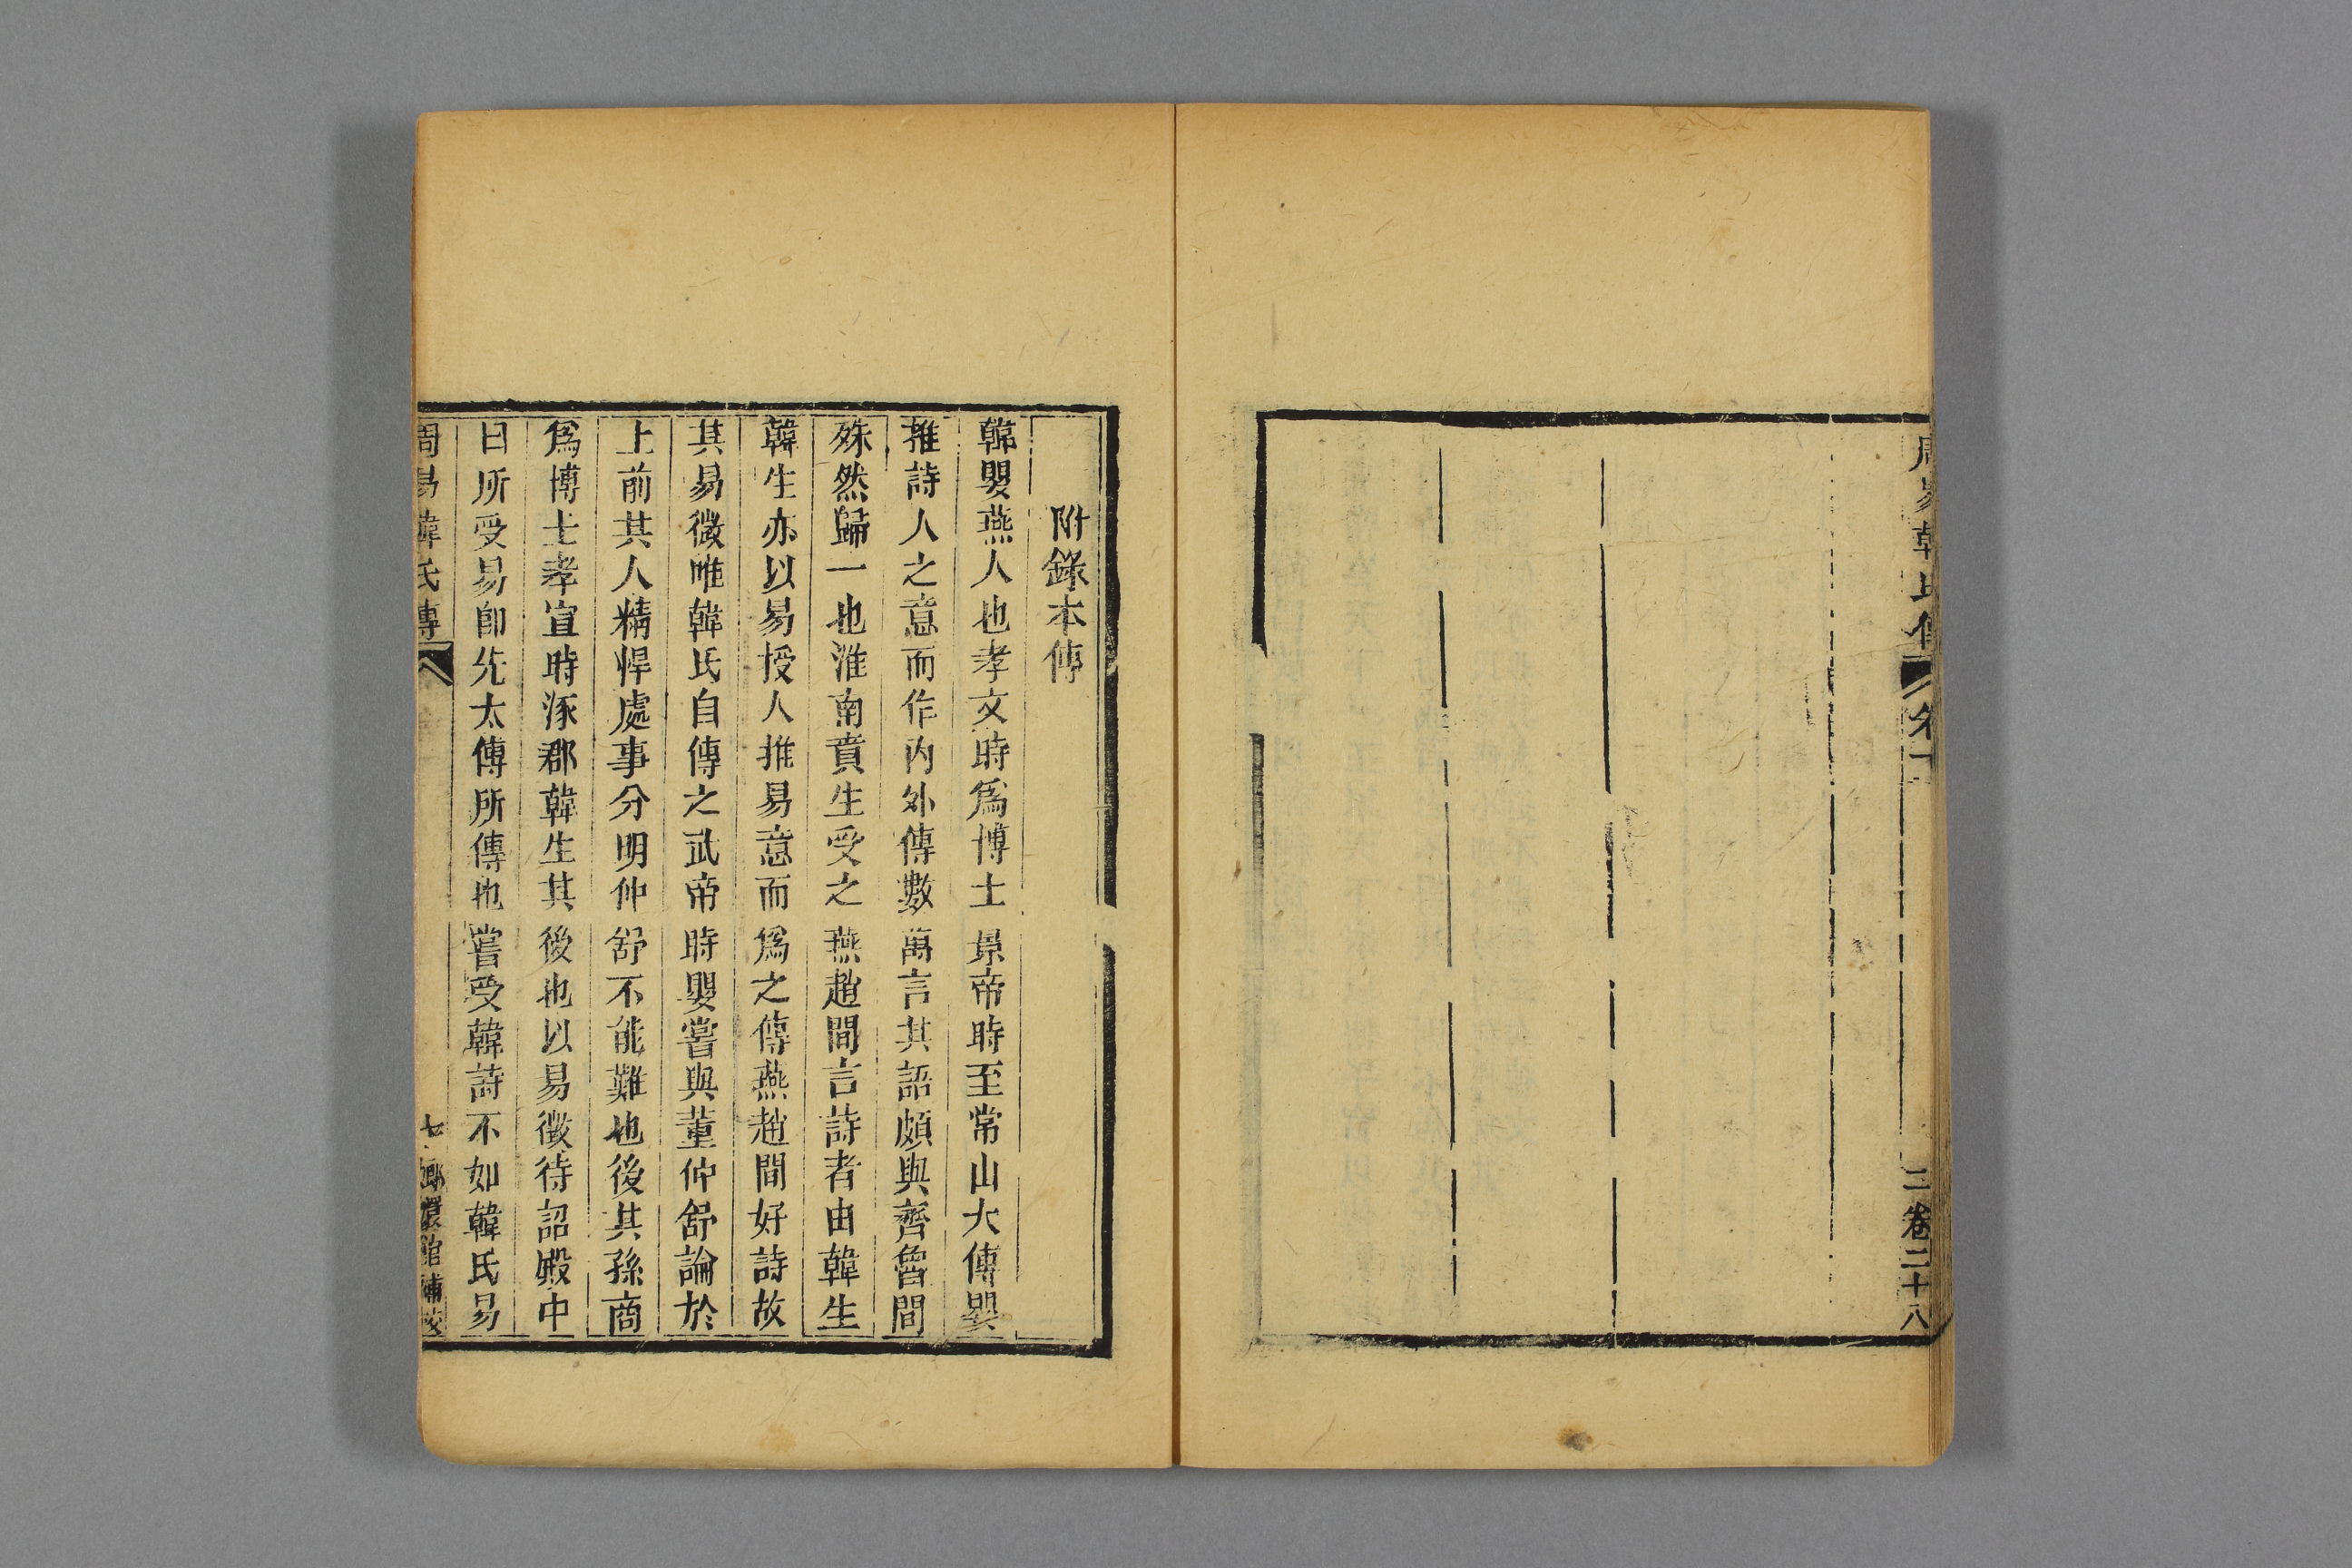 周易韓氏傳 卷下
三 卷二十八
附錄本傳
韓嬰燕人也孝文時爲博士景帝時至常山大傅嬰
推詩人之意而作內外傳數萬言其語頗與齊魯間
殊然歸一也淮南賁生受之燕趙間言詩者由韓生
韓生亦以易授人推易意而爲之傳燕趙間好詩故
其易微唯韓氏自傳之武帝時嬰嘗與董仲舒論於
上前其人精悍處事分明仲舒不能難也後其孫商
爲博士孝宣時涿郡韓生其後也以易徵待詔殿中
曰所受易卽先太傅所傳也嘗受韓詩不如韓氏易
周易韓氏傳
七 嫏嬛館補校